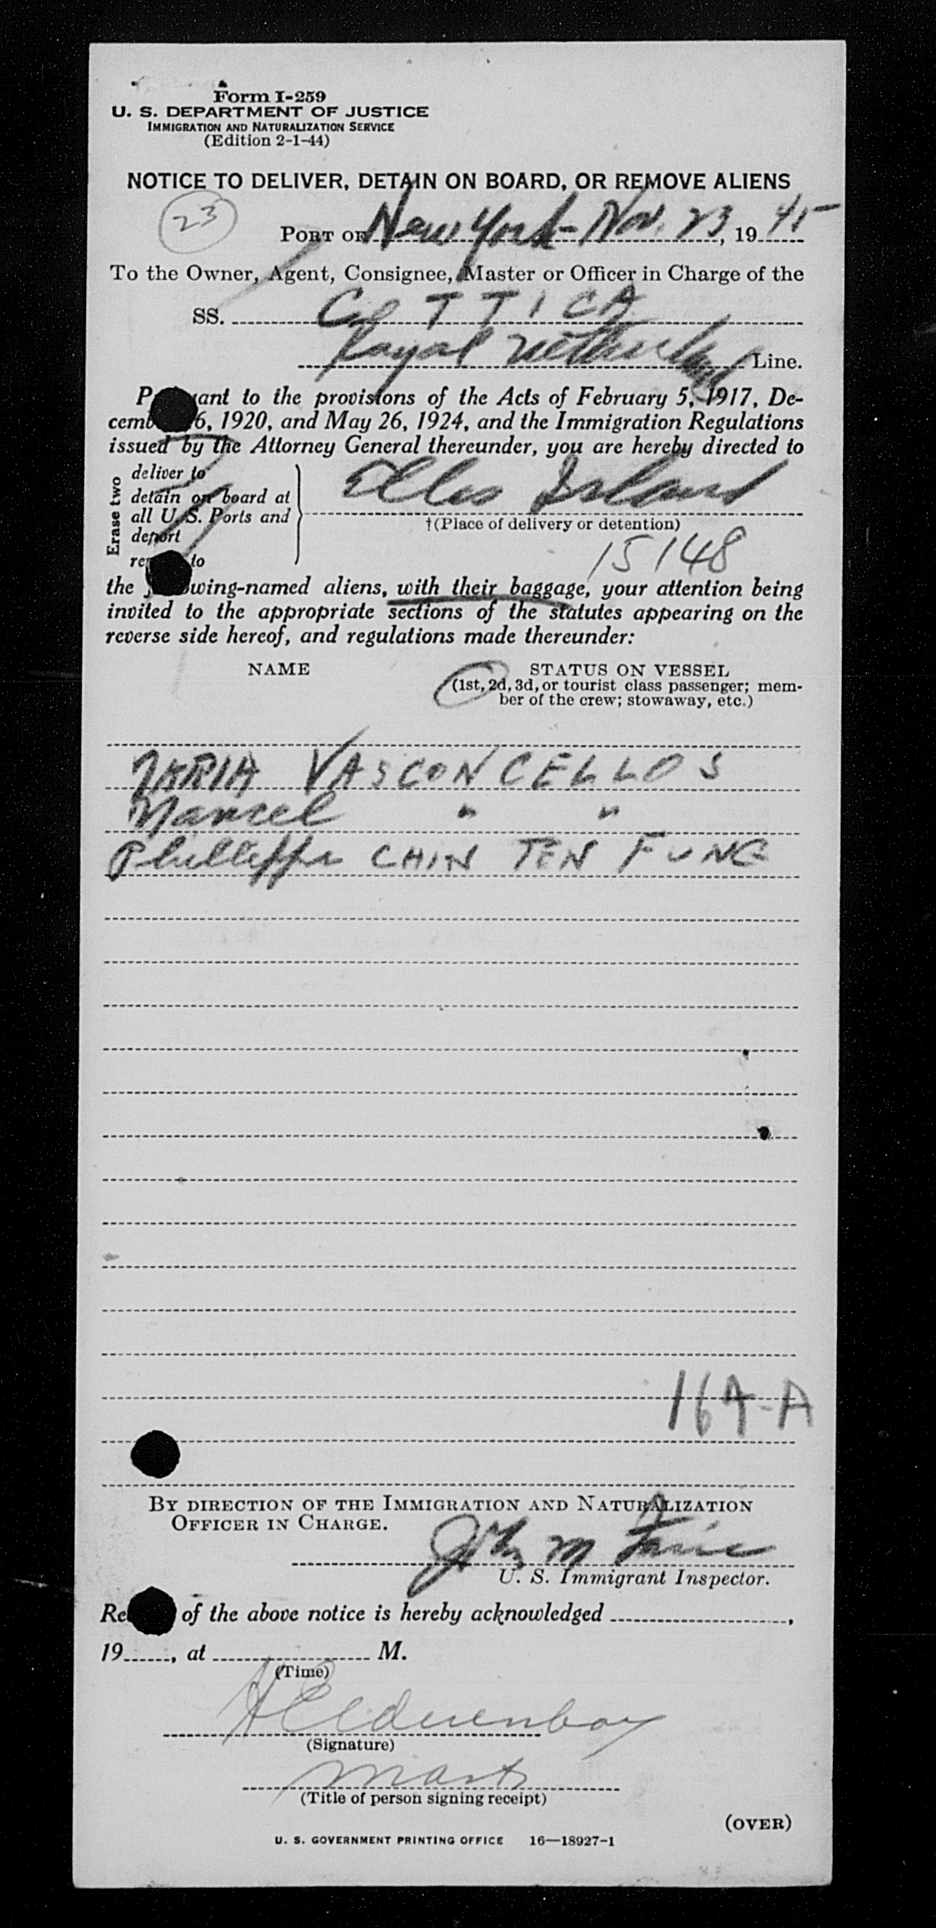 Form I-259
U. S. DEPARTMENT OF JUSTICE
IMMIGRATION AND NATURALIZATION SERVICE
(Edition 2-1-44)
NOTICE TO DELIVER, DETAIN ON BOARD, OR REMOVE ALIENS
23
PORT OF New York - Nov. 23, 1945
To the Owner, Agent, Consignee, Master or Officer in Charge of the
SS. COTTICA
Royal Netherland Line.
P ant to the provisions of the Acts of February 5, 1917, De-
cemb 6, 1920, and May 26, 1924, and the Immigration Regulations
issued by the Attorney General thereunder, you are hereby directed to
Erase two
deliver to
detain on board at
all U. S. Ports and
deport
re to
Ellis Island
†(Place of delivery or detention)
15148
the owing-named aliens, with their baggage, your attention being
invited to the appropriate sections of the statutes appearing on the
reverse side hereof, and regulations made thereunder:
NAME STATUS ON VESSEL
(1st, 2d, 3d, or tourist class passenger; mem-
ber of the crew; stowaway, etc.)
MARIA VASCONCELLOS
Marcel " "
Phillippe CHIN TEN FUNG
164-A
BY DIRECTION OF THE IMMIGRATION AND NATURALIZATION
OFFICER IN CHARGE.
John M
U. S. Immigrant Inspector.
Re of the above notice is hereby acknowledged ,
19 , at M.
(Time)
(Signature)
(Title of person signing receipt)
(OVER)
U. S. GOVERNMENT PRINTING OFFICE 16—18927-1